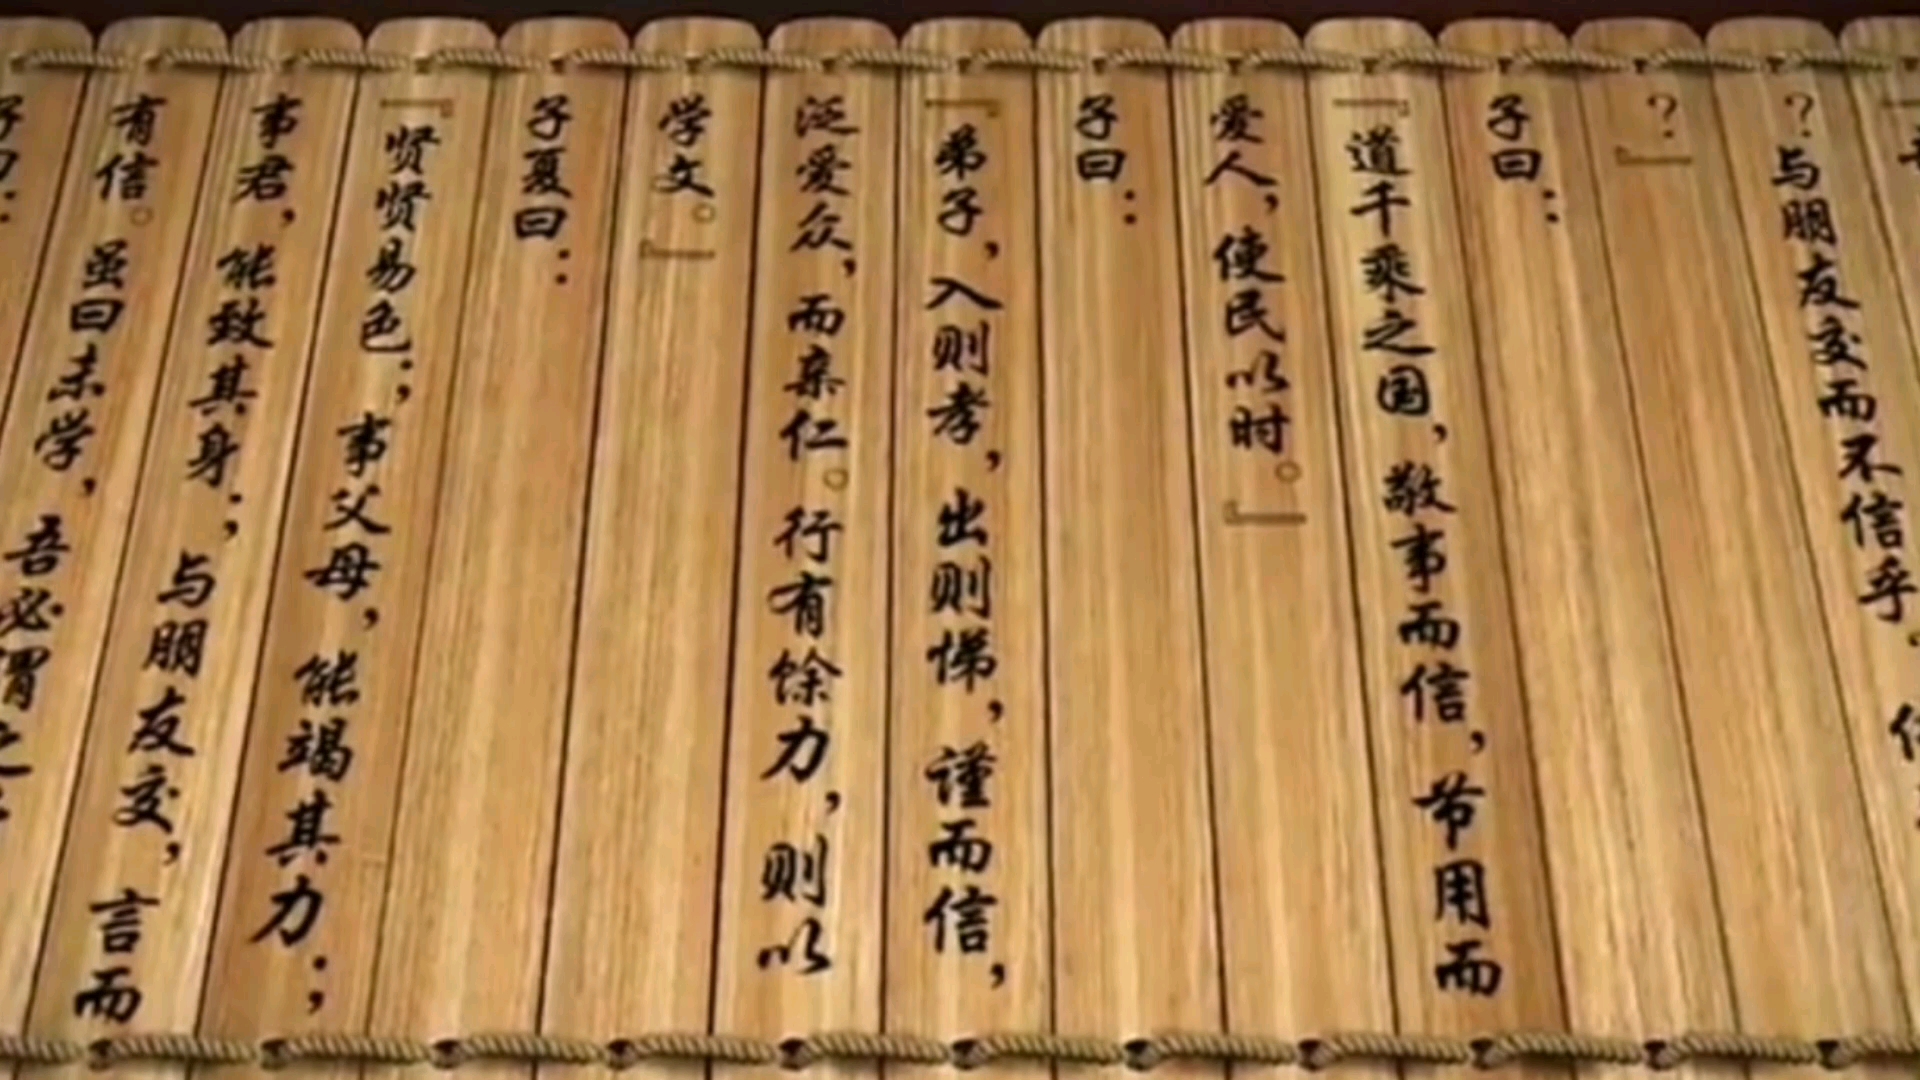 ？与朋友交而不信乎？传
？』
子曰：
『道千乘之国，敬事而信，节用而
爱人，使民以时。』
子曰：
『弟子，入则孝，出则悌，谨而信，
泛爱众，而亲仁。行有馀力，则以
学文。』
子夏曰：
『贤贤易色；事父母，能竭其力；
事君，能致其身；与朋友交，言而
有信。虽曰未学，吾必谓之
子曰：